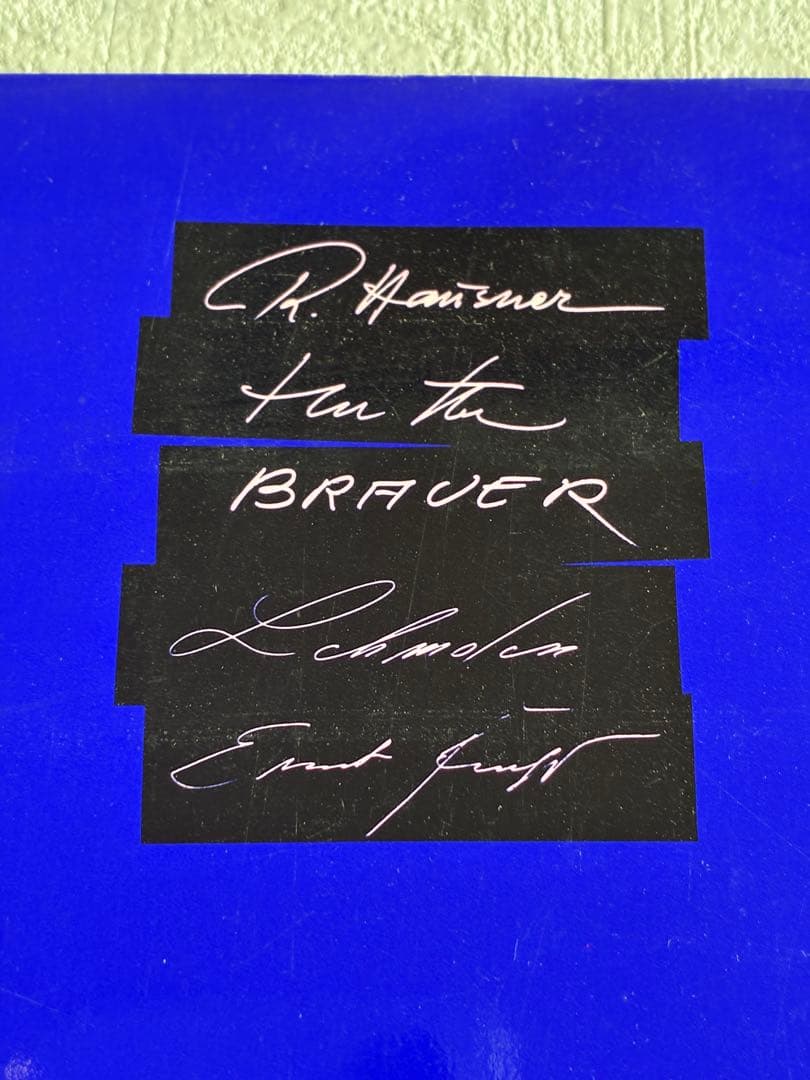 R. Hausner
BRAUER
Lehmden
Ernst Fuchs